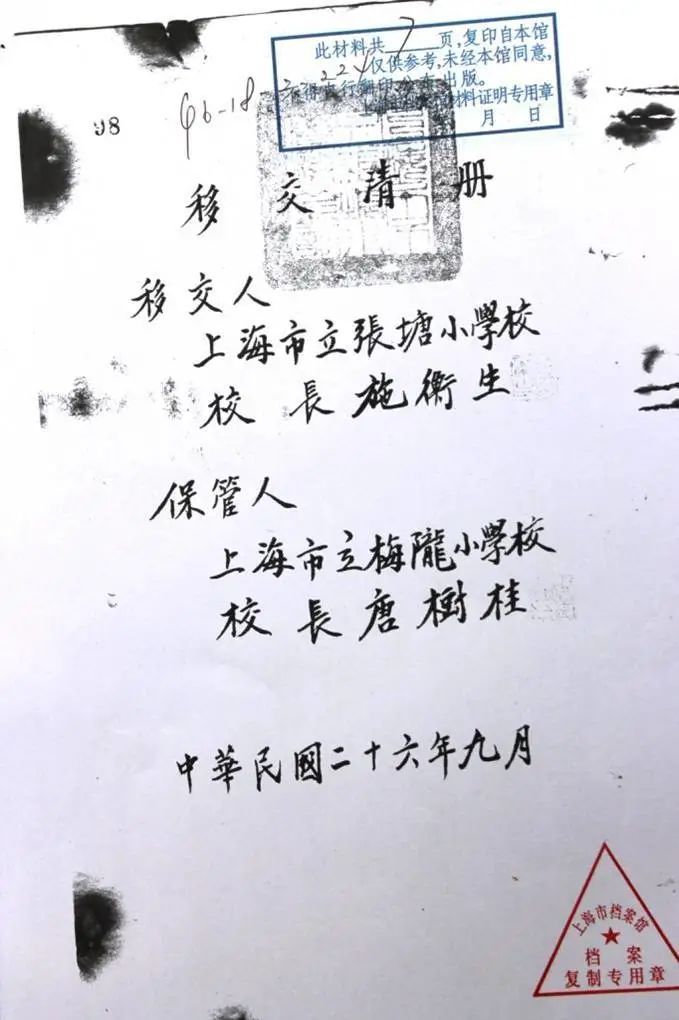 此材料共 页，复印自本馆
仅供参考，未经本馆同意，
不得自行翻印公布出版。
材料证明专用章
月 日
98
移交清册
移交人
上海市立張塘小學校
校長施衛生
保管人
上海市立梅隴小學校
校長唐樹桂
中華民國二十六年九月
上海市档案馆
档案
复制专用章